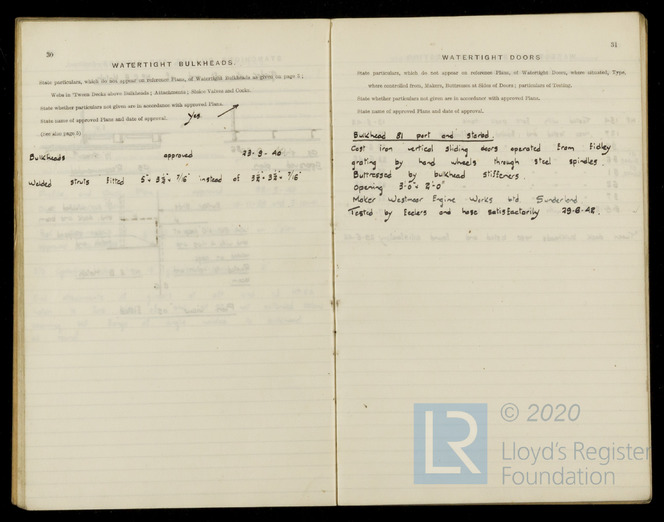 50
WATERTIGHT BULKHEADS.
State particulars, which do not appear on reference Plans, of Watertight Bulkheads as given on page 2;
Webs in 'Tween Decks above Bulkheads; Attachments; Sluice Valves and Cocks.
State whether particulars not given are in accordance with approved Plans.
State name of approved Plans and date of approval. Yes
(See also page 5)
Bulkheads approved 23-9-40
Welded struts fitted 5" x 3½" x 7/16" instead of 3½" x 3½" x 7/16"
51
WATERTIGHT DOORS
State particulars, which do not appear on reference Plans, of Watertight Doors, where situated, Type,
where controlled from, Makers, Buttresses at Sides of Doors; particulars of Testing.
State whether particulars not given are in accordance with approved Plans.
State name of approved Plans and date of approval.
Bulkhead 81 port and starbd.
Cast iron vertical sliding doors operated from fidley
grating by hand wheels through steel spindles.
Buttressed by bulkhead stiffeners.
Opening 3'-0" x 2'-0"
Maker Westmoor Engine Works Ltd. Sunderland
Tested by feelers and hose satisfactorily 29-6-42.
LR
© 2020
Lloyd's Register
Foundation